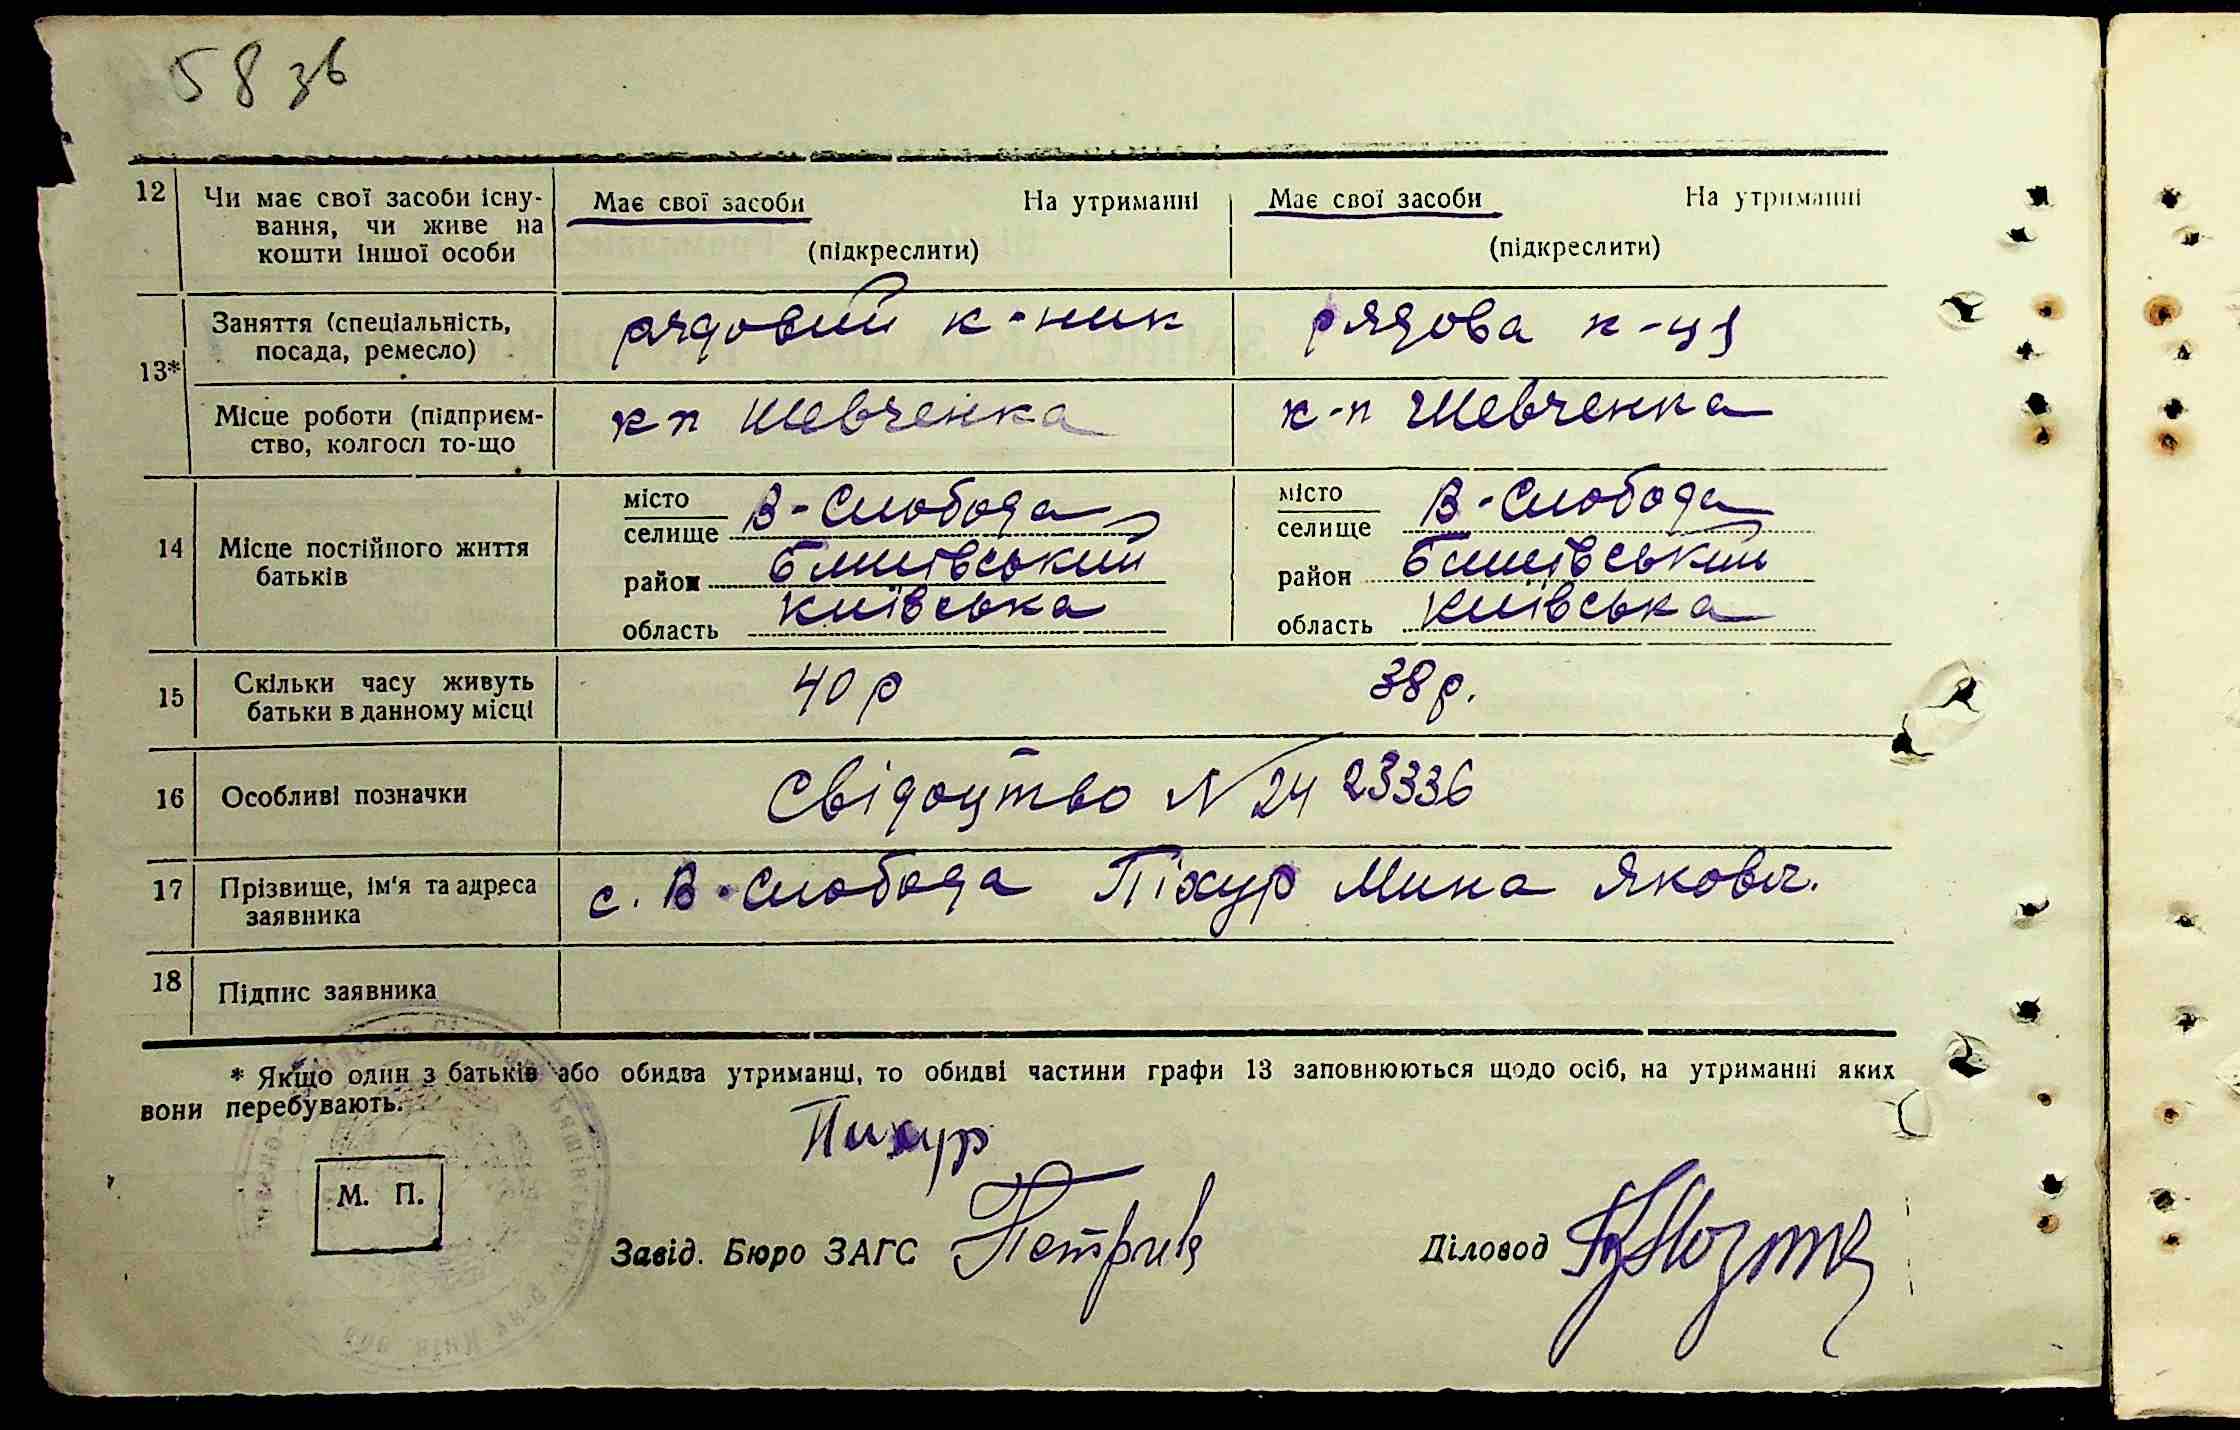 58 зв
12 Чи має свої засоби існу-
вання, чи живе на
кошти іншої особи
Має свої засоби На утриманні
(підкреслити)
Має свої засоби На утриманні
(підкреслити)
13*
Заняття (спеціальність,
посада, ремесло)
рядовий к-ник
рядова к-ця
Місце роботи (підприєм-
ство, колгосп то-що
к п Шевченка
к-п Шевченка
14 Місце постійного життя
батьків
місто
селище В-Слобода
район Бишівський
область Київська
місто
селище В-Слобода
район Бишівський
область Київська
15 Скільки часу живуть
батьки в данному місці
40 р
38 р.
16 Особливі позначки
Свідоцтво N 24 23336
17 Прізвище, ім'я та адреса
заявника
с. В-Слобода Піхур Мина Якович.
18 Підпис заявника
* Якщо один з батьків або обидва утриманці, то обидві частини графи 13 заповнюються щодо осіб, на утриманні яких
вони перебувають.
Пихур
М. П.
Завід. Бюро ЗАГС
Діловод